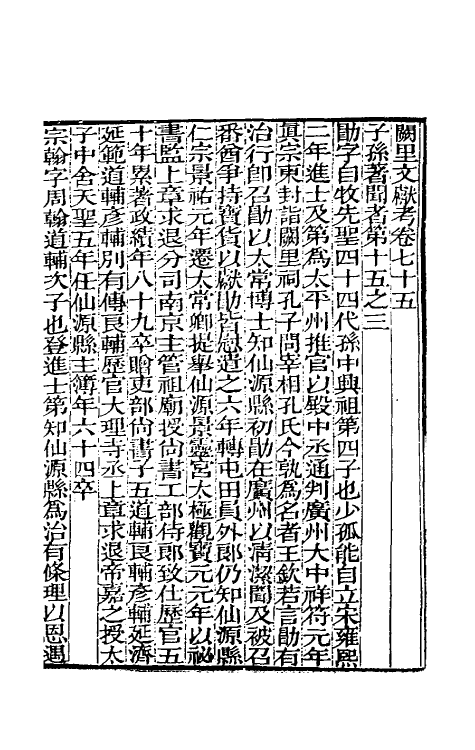 闕里文獻考卷七十五
子孫著聞者第十五之三
勛字自牧先聖四十四代孫中興祖第四子也少孤能自立宋雍熙
二年進士及第為太平州推官以殿中丞通判廣州大中祥符元年
眞宗東封詣闕里祠孔子問宰相孔氏今孰為名者王欽若言勛有
治行卽召勛以太常博士知仙源縣初勛在廣州以清潔聞及被召
番酋爭持寶貨以獻勛皆慰遣之六年轉屯田員外郎仍知仙源縣
仁宗景祐元年遷太常卿提舉仙源景靈宮太極觀寶元元年以祕
書監上章求退分司南京主管祖廟授尚書工部侍郎致仕歷官五
十年累著政績年八十九卒贈吏部尚書子五道輔良輔彥輔延濟
延範道輔彥輔別有傳良輔歷官大理寺丞上章求退帝嘉之授太
子中舍天聖五年任仙源縣主簿年六十四卒
宗翰字周翰道輔次子也登進士第知仙源縣為治有條理以恩遇